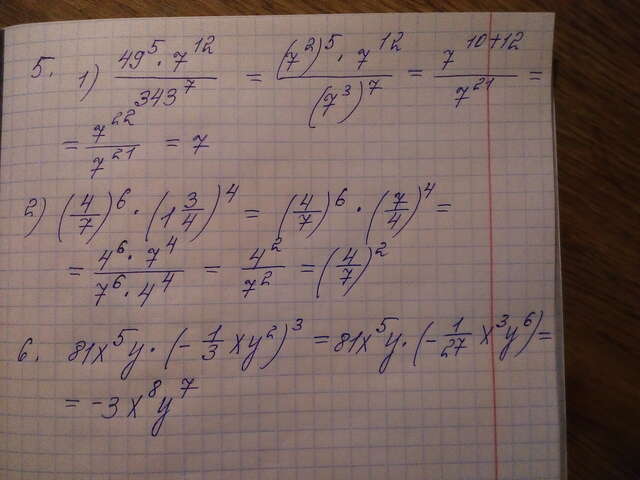 5. 1) (49^5 · 7^12)/(343^7) = ((7^2)^5 · 7^12)/((7^3)^7) = (7^(10+12))/(7^21) =
= (7^22)/(7^21) = 7
2) (4/7)^6 · (1 3/4)^4 = (4/7)^6 · (7/4)^4 =
= (4^6 · 7^4)/(7^6 · 4^4) = (4^2)/(7^2) = (4/7)^2
6. 81x^5y · (-1/3 xy^2)^3 = 81x^5y · (-1/27 x^3y^6) =
= -3x^8y^7